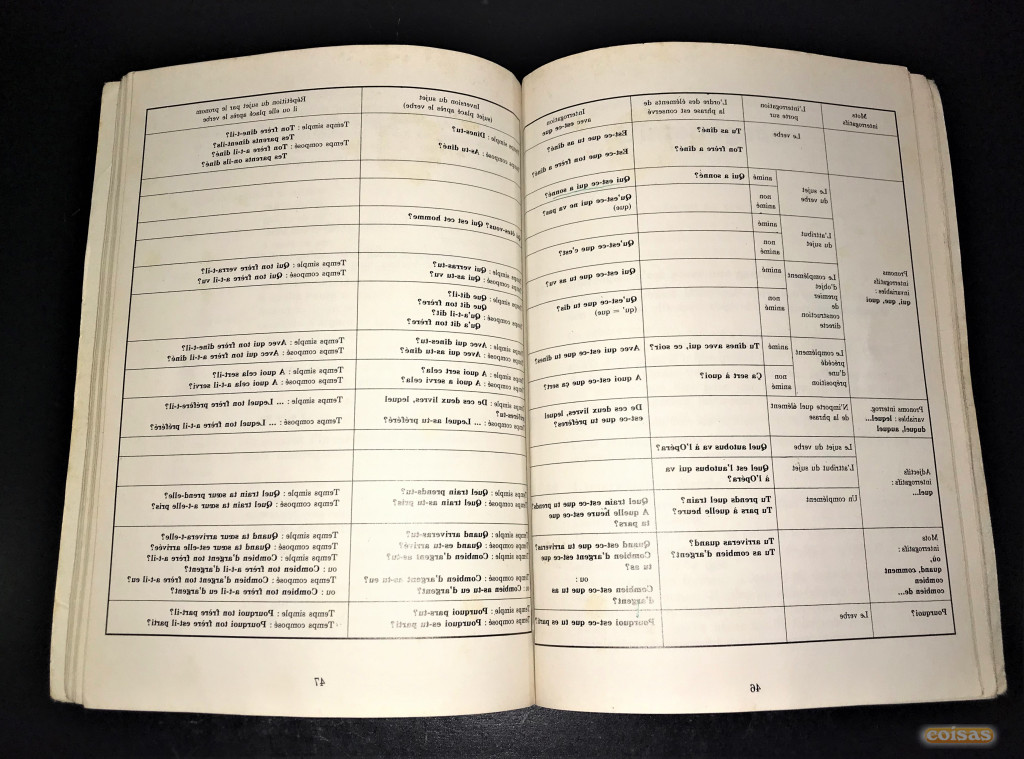 Mots
interrogatifs
L'interrogation
porte sur
L'ordre des éléments de
la phrase est conservé
Interrogation
avec est-ce que
Inversion du sujet
(sujet placé après le verbe)
Répétition du sujet par le pronom
il ou elle placé après le verbe
Le verbe
Tu as dîné?
Ton frère a dîné?
Est-ce que tu as dîné?
Est-ce que ton frère a dîné?
simple : Dînes-tu?
composé : As-tu dîné?
Temps simple : Ton frère dîne-t-il?
Tes parents dînent-ils?
Temps composé : Ton frère a-t-il dîné?
Tes parents ont-ils dîné?
Pronoms
interrogatifs
invariables :
qui, que, quoi
Le sujet
du verbe
animé
Qui a sonné?
Qui est-ce qui a sonné?
non
animé
Qu'est-ce qui ne va pas?
(que)
L'attribut
du sujet
animé
êtes-vous? Qui est cet homme?
non
animé
Qu'est-ce que c'est?
Le complément
d'objet
premier
de
construction
directe
animé
Qui est-ce que tu as vu?
simple : Qui verras-tu?
composé : Qui as-tu vu?
Temps simple : Qui ton frère verra-t-il?
Temps composé : Qui ton frère a-t-il vu?
non
animé
Qu'est-ce que tu dis?
(qu' = que)
simple : Que dit-il?
Que dit ton frère?
composé : Qu'a-t-il dit?
Qu'a dit ton frère?
Le complément
précédé
d'une
préposition
animé
Tu dînes avec qui, ce soir?
Avec qui est-ce que tu dînes?
simple : Avec qui dînes-tu?
composé : Avec qui as-tu dîné?
Temps simple : Avec qui ton frère dîne-t-il?
Temps composé : Avec qui ton frère a-t-il dîné?
non
animé
Ça sert à quoi?
A quoi est-ce que ça sert?
simple : A quoi sert cela?
composé : A quoi a servi cela?
Temps simple : A quoi cela sert-il?
Temps composé : A quoi cela a-t-il servi?
Pronoms interrog.
variables lequel...
duquel, auquel
N'importe quel élément
de la phrase
De ces deux livres, lequel
est-ce que tu préfères?
simple : De ces deux livres, lequel
préfères-tu?
composé : ... Lequel as-tu préféré?
Temps simple : ... Lequel ton frère préfère-t-il?
Temps composé : ... Lequel ton frère a-t-il préféré?
Adjectifs
interrogatifs :
quel...
Le sujet du verbe
Quel autobus va à l'Opéra?
L'attribut du sujet
Quel est l'autobus qui va
à l'Opéra?
Un complément
Tu prends quel train?
Tu pars à quelle heure?
Quel train est-ce que tu prends?
A quelle heure est-ce que
tu pars?
simple : Quel train prends-tu?
composé : Quel train as-tu pris?
Temps simple : Quel train ta sœur prend-elle?
Temps composé : Quel train ta sœur a-t-elle pris?
Mots
interrogatifs :
où,
quand, comment
combien
combien de...
Tu arriveras quand?
Tu as combien d'argent?
Quand est-ce que tu arriveras?
Combien d'argent est-ce que
tu as?
ou :
Combien est-ce que tu as
d'argent?
simple : Quand arriveras-tu?
composé : Quand es-tu arrivé?
simple : Combien d'argent as-tu?
composé : Combien d'argent as-tu eu?
ou : Combien as-tu eu d'argent?
Temps simple : Quand ta sœur arrivera-t-elle?
Temps composé : Quand ta sœur est-elle arrivée?
Temps simple : Combien d'argent ton frère a-t-il?
ou : Combien ton frère a-t-il d'argent?
Temps composé : Combien d'argent ton frère a-t-il eu?
ou : Combien ton frère a-t-il eu d'argent?
Pourquoi?
Le verbe
Pourquoi est-ce que tu es parti?
simple : Pourquoi pars-tu?
composé : Pourquoi es-tu parti?
Temps simple : Pourquoi ton frère part-il?
Temps composé : Pourquoi ton frère est-il parti?
46
47
coisas